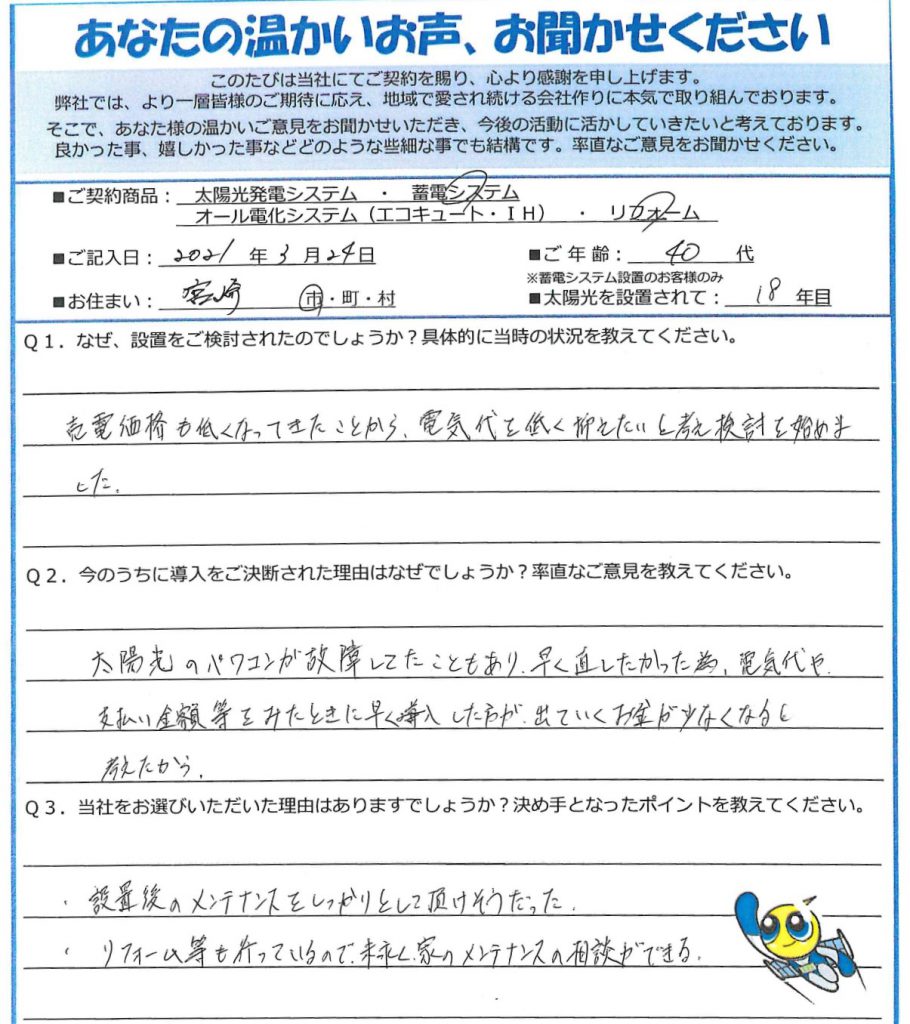 あなたの温かいお声、お聞かせください
このたびは当社にてご契約を賜り、心より感謝を申し上げます。
弊社では、より一層皆様のご期待に応え、地域で愛され続ける会社作りに本気で取り組んでおります。
そこで、あなた様の温かいご意見をお聞かせいただき、今後の活動に活かしていきたいと考えております。
良かった事、嬉しかった事などどのような些細な事でも結構です。率直なご意見をお聞かせください。
■ご契約商品： 太陽光発電システム ・ 蓄電システム
オール電化システム（エコキュート・ＩＨ） ・ リフォーム
■ご記入日： 2021 年 3 月 24 日 ■ご年齢： 40 代
※蓄電システム設置のお客様のみ
■お住まい： 宮崎 市・町・村 ■太陽光を設置されて： 18 年目
Ｑ１．なぜ、設置をご検討されたのでしょうか？具体的に当時の状況を教えてください。
売電価格も低くなってきたことから、電気代を低く抑えたいと考え検討を始めま
した。
Ｑ２．今のうちに導入をご決断された理由はなぜでしょうか？率直なご意見を教えてください。
太陽光のパワコンが故障してたこともあり、早く直したかった為、電気代や
支払い金額等をみたときに早く導入した方が、出ていくお金が少なくなると
考えたから。
Ｑ３．当社をお選びいただいた理由はありますでしょうか？決め手となったポイントを教えてください。
・設置後のメンテナンスをしっかりとして頂けそうだった。
・リフォーム等も行っているので、末永く、家のメンテナンスの相談ができる。